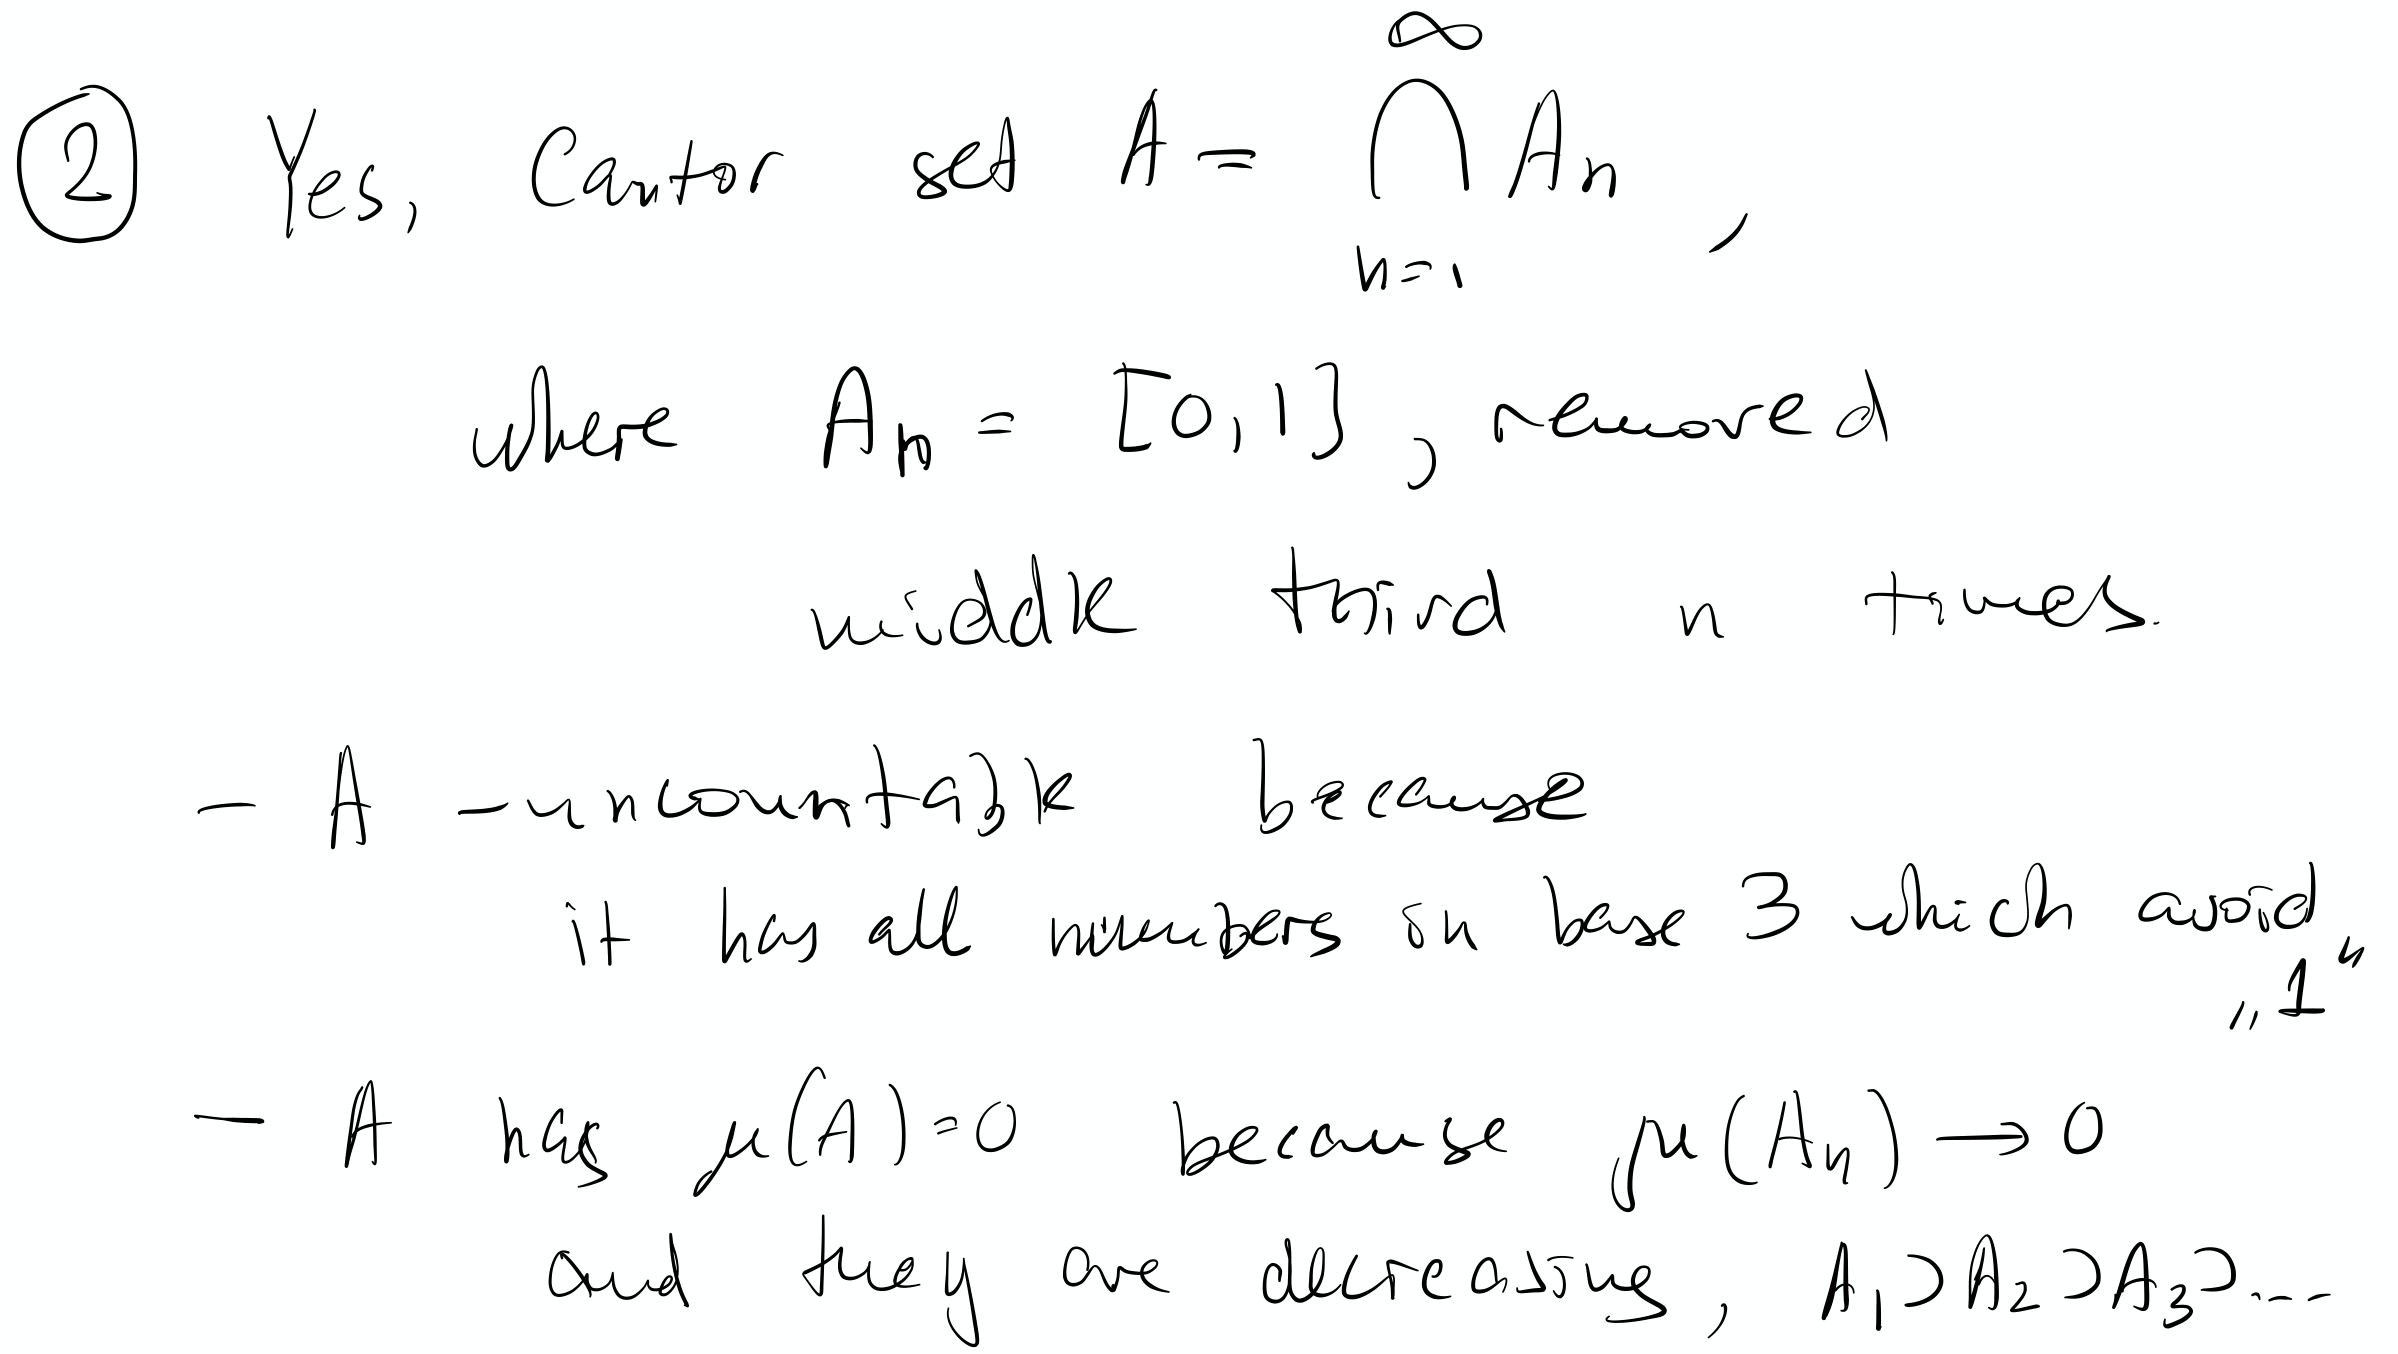 ② Yes, Cantor set A = ⋂_{n=1}^{∞} A_n ,
where A_n = [0,1], removed
middle third n times.
- A - uncountable because
it has all numbers in base 3 which avoid
„1“
- A has μ(A)=0 because μ(A_n) → 0
and they are decreasing, A_1⊃A_2⊃A_3⊃...